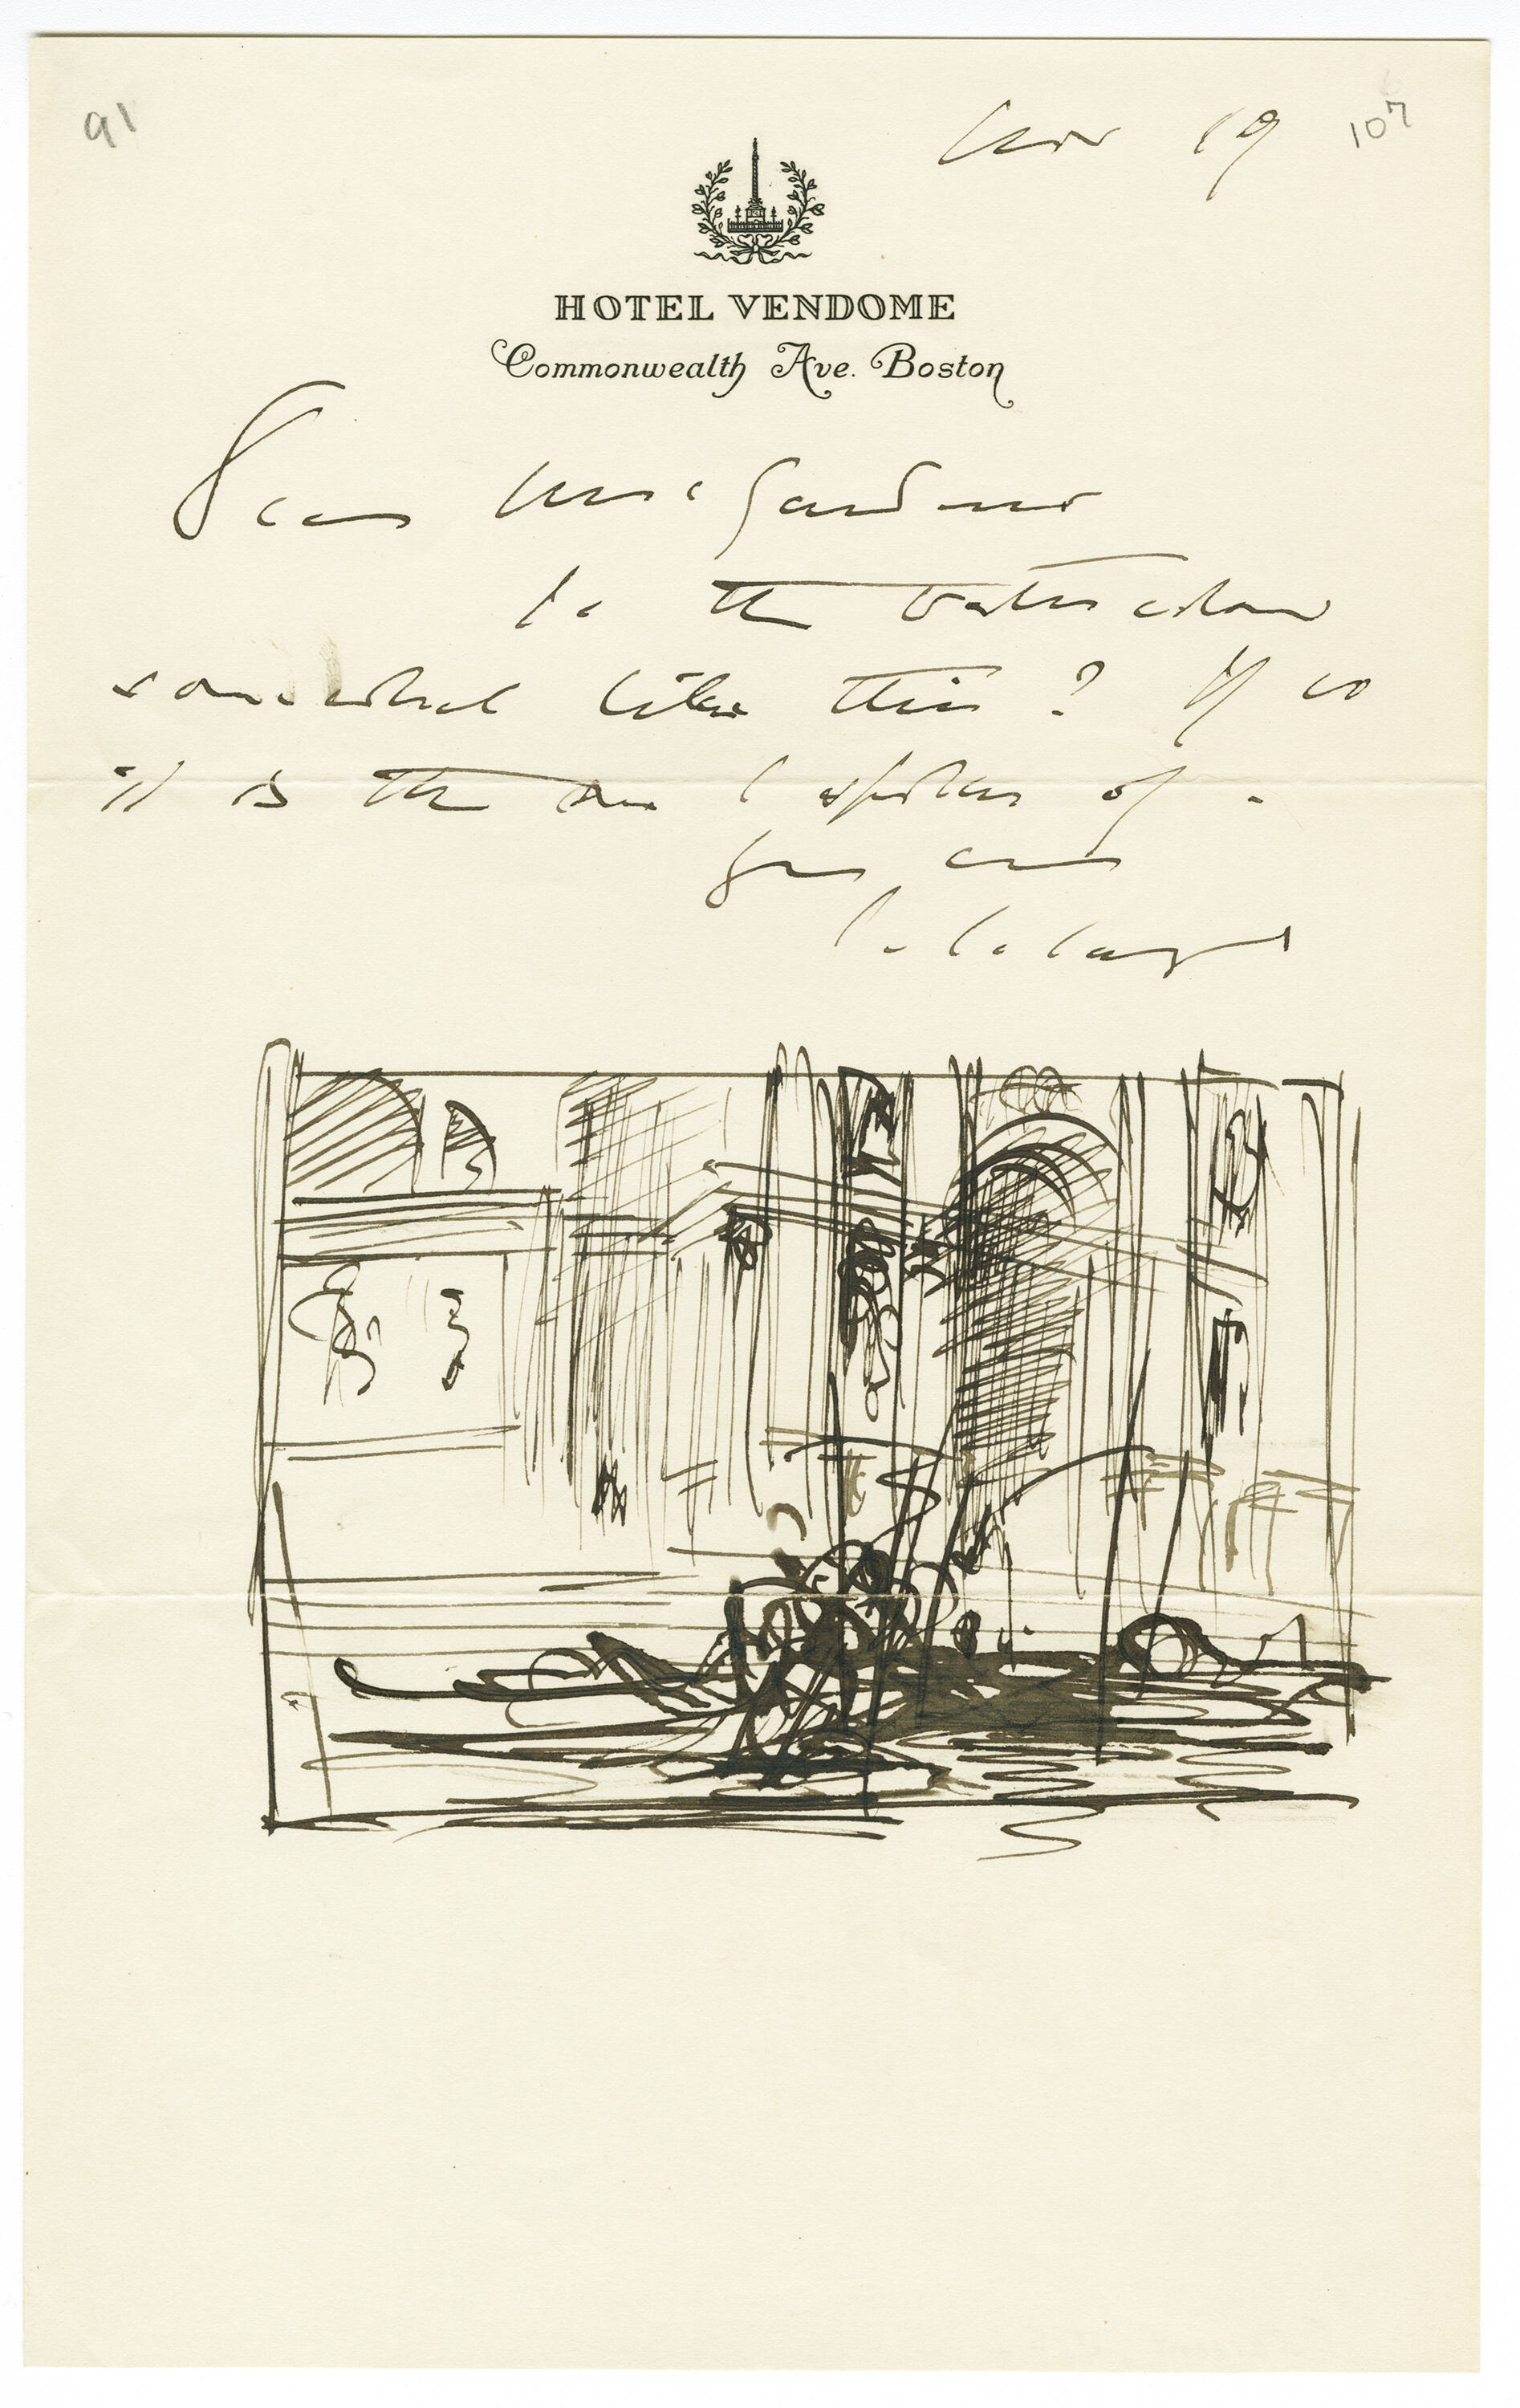 91
Nov 19
107
HOTEL VENDOME
Commonwealth Ave. Boston
Dear Mrs Gardner
Is the watercolour
somewhat like this? If so
it is the one I spoke of.